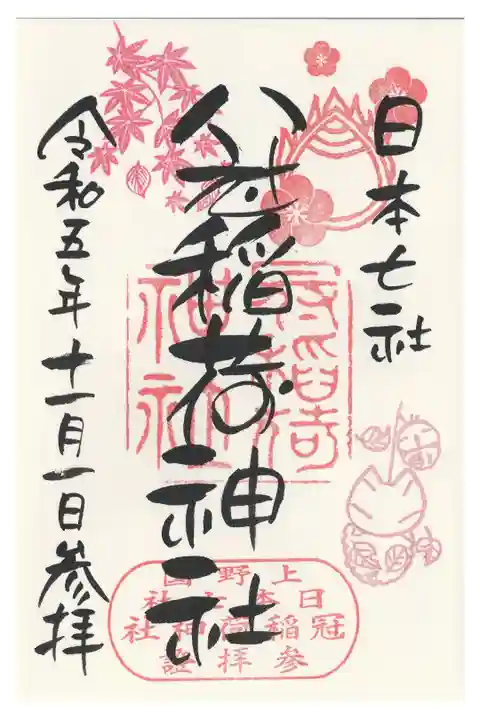 日本七社
冠稲荷神社
令和五年十一月一日参拝
冠稲荷
神社
上野國
日本七社
冠稲荷神社
参拝證